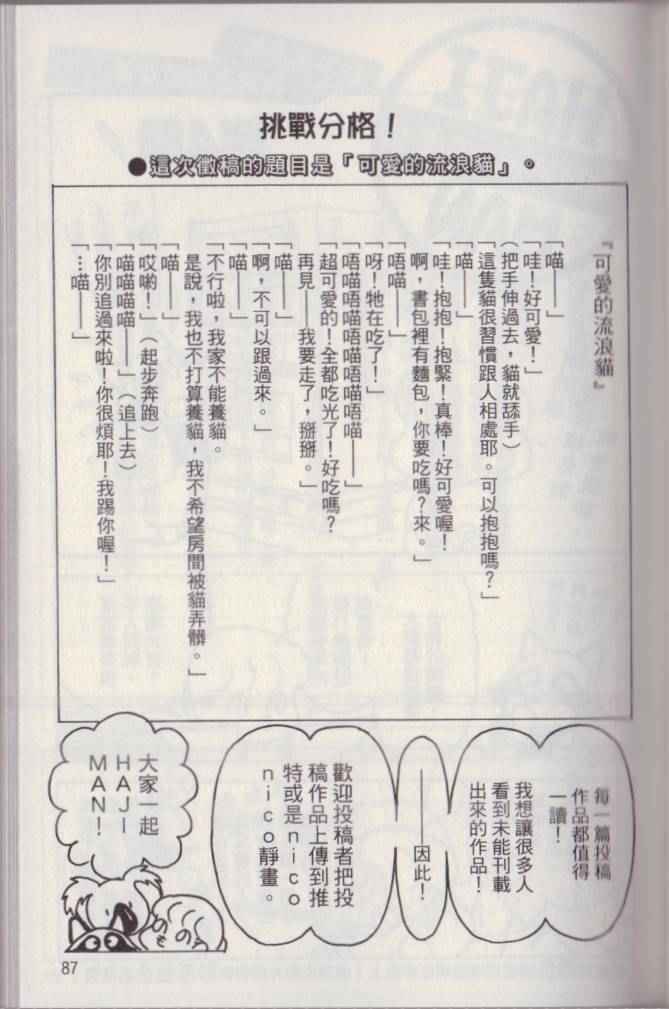 挑戰分格！
●這次徵稿的題目是「可愛的流浪貓」。
『可愛的流浪貓』
「喵——」
「哇！好可愛！」
（把手伸過去，貓就舔手）
「這隻貓很習慣跟人相處耶。可以抱抱嗎？」
「喵——」
「哇！抱抱！抱緊！真棒！好可愛喔！
啊，書包裡有麵包，你要吃嗎？來。」
「唔喵——」
「呀！牠在吃了！」
「唔喵唔喵唔喵唔喵唔喵——」
「超可愛的！全都吃光了！好吃嗎？
再見——我要走了，掰掰。」
「喵——」
「啊，不可以跟過來。」
「喵——」
「不行啦，我家不能養貓。
是說，我也不打算養貓，我不希望房間被貓弄髒。」
「喵——」
「哎喲！」（起步奔跑）
「喵喵喵喵——」（追上去）
「你別追過來啦！你很煩耶！我踢你喔！」
「…喵——」
每一篇投稿
作品都值得
一讀！
我想讓很多人
看到未能刊載
出來的作品！
——因此！
歡迎投稿者把投
稿作品上傳到推
特或是nico
nico靜畫。
大家一起
HAJI
MAN！
87